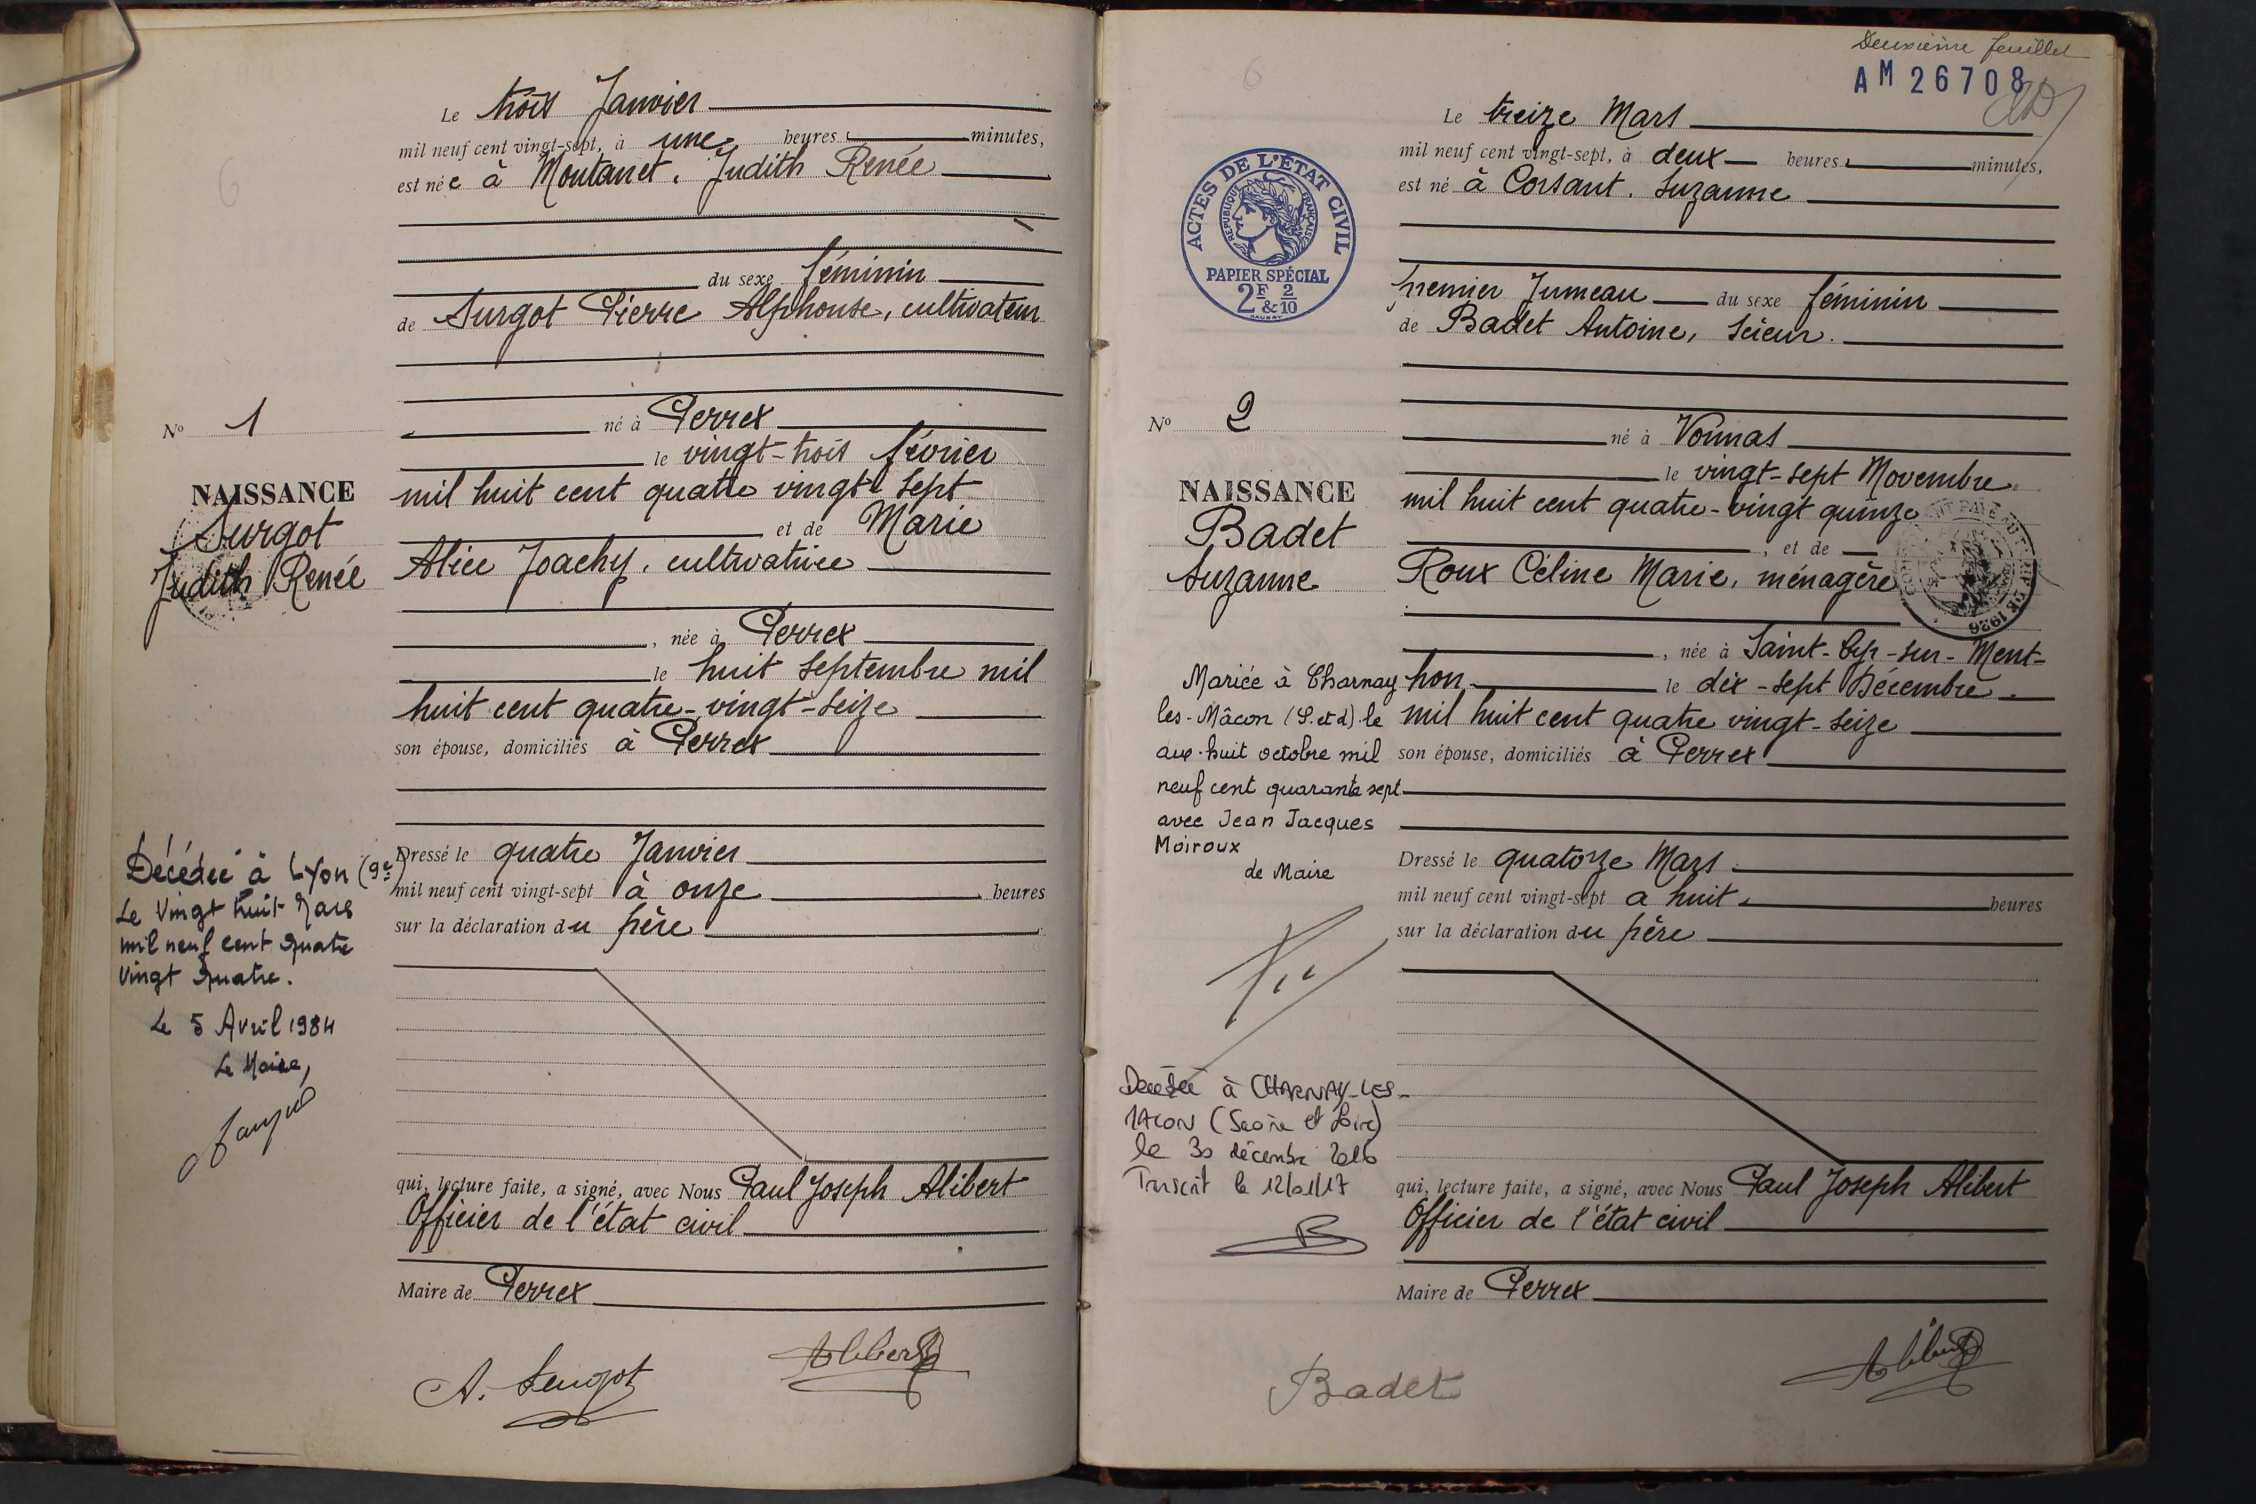 Le trois Janvier
mil neuf cent vingt-sept, à une heures minutes,
est née à Montanet. Judith Renée
du sexe féminin
de Surgot Pierre Alphonse, cultivateur
né à Perrex
le vingt-trois février
mil huit cent quatre vingt sept
et de Marie
Alice Joachy, cultivatrice
, née à Perrex
le huit septembre mil
huit cent quatre-vingt-seize
son épouse, domiciliés à Perrex
Dressé le quatre Janvier
mil neuf cent vingt-sept à onze heures
sur la déclaration du père
qui, lecture faite, a signé, avec Nous Paul Joseph Alibert
Officier de l'état civil
Maire de Perrex
A. Surgot
Alibert
No 1
NAISSANCE
Surgot
Judith Renée
Décédée à Lyon (9e)
Le Vingt huit Mars
mil neuf cent quatre
Vingt quatre.
Le 5 Avril 1984
Le Maire,
Deuxième feuillet
AM 26708
ACTES DE L'ÉTAT CIVIL
RÉPUBLIQUE FRANÇAISE
PAPIER SPÉCIAL
2F & 2/10
Le treize Mars
mil neuf cent vingt-sept, à deux heures minutes,
est né à Corsant. Suzanne
premier Jumeau du sexe féminin
de Badet Antoine, scieur.
né à Vonnas
le vingt-sept Novembre
mil huit cent quatre-vingt quinze
, et de
Roux Céline Marie, ménagère
, née à Saint-Cyr-sur-Ment-
hon le dix-sept Décembre
mil huit cent quatre vingt-seize
son épouse, domiciliés à Perrex
Dressé le quatorze Mars
mil neuf cent vingt-sept a huit heures
sur la déclaration du père
qui, lecture faite, a signé, avec Nous Paul Joseph Alibert
Officier de l'état civil
Maire de Perrex
Badet
Alibert
No 2
NAISSANCE
Badet
Suzanne
1926
Mariée à Charnay
les-Mâcon (S.et d) le
huit octobre mil
neuf cent quarante sept
avec Jean Jacques
Moiroux
de Maire
Décédée à CHARNAY-LES-
MACON (Saône et Loire)
le 30 décembre 2016
Transcrit le 12/01/17